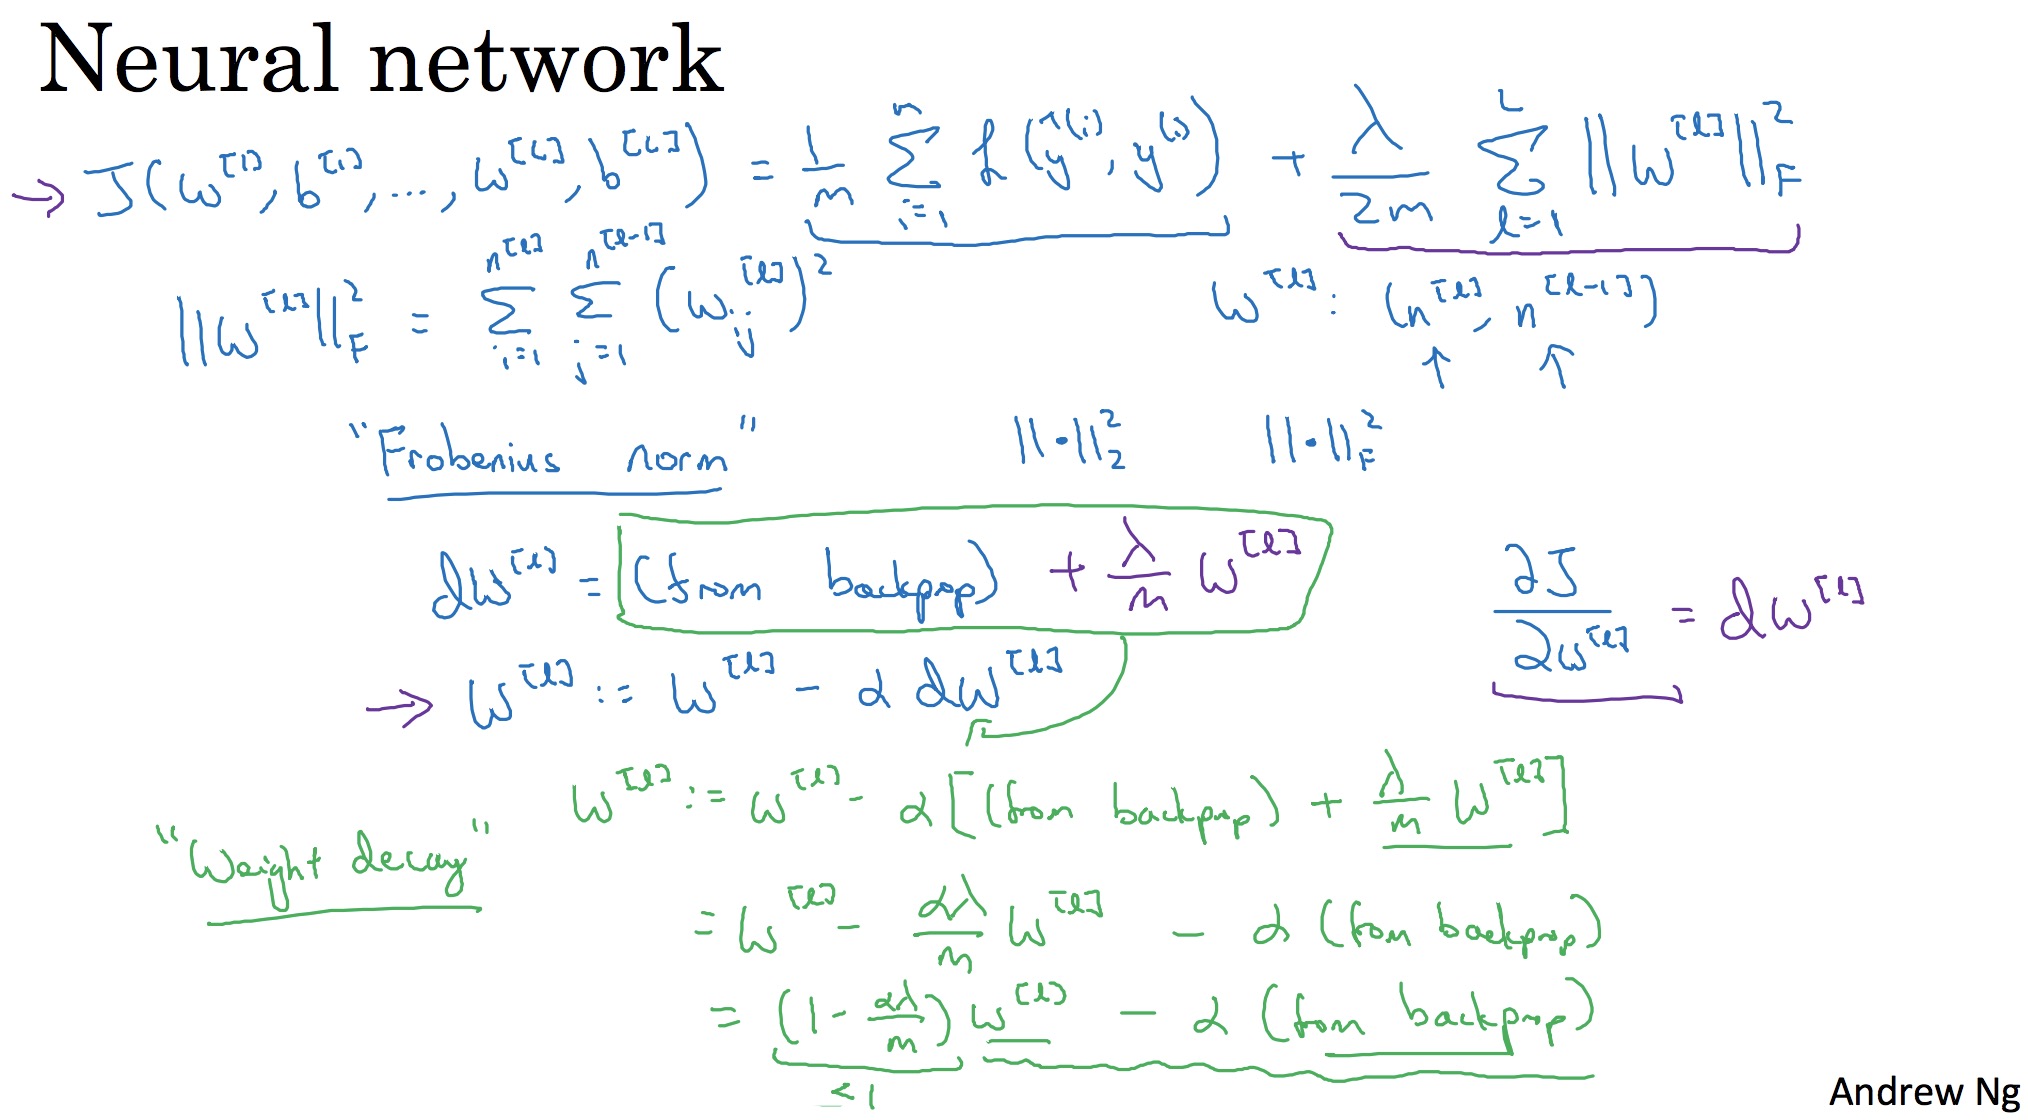 Neural network
→ J(w^[1], b^[1], ..., w^[L], b^[L]) = 1/m Σ_{i=1}^{m} ℒ(ŷ^(i), y^(i)) + λ/2m Σ_{l=1}^{L} ||w^[l]||_F^2
||w^[l]||_F^2 = Σ_{i=1}^{n^[l]} Σ_{j=1}^{n^[l-1]} (w_ij^[l])^2    w^[l]: (n^[l], n^[l-1])
↑ ↑
"Frobenius norm"    ||·||_2^2    ||·||_F^2
dw^[l] = (from backprop) + λ/m w^[l]    ∂J/∂w^[l] = dw^[l]
→ w^[l] := w^[l] - α dw^[l]
w^[l] := w^[l] - α[(from backprop) + λ/m w^[l]]
"Weight decay"
= w^[l] - αλ/m w^[l] - α (from backprop)
= (1 - αλ/m) w^[l] - α (from backprop)
<1
Andrew Ng